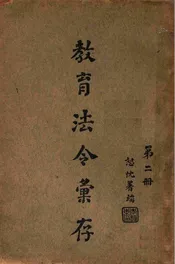 教育法令彙存
第二冊